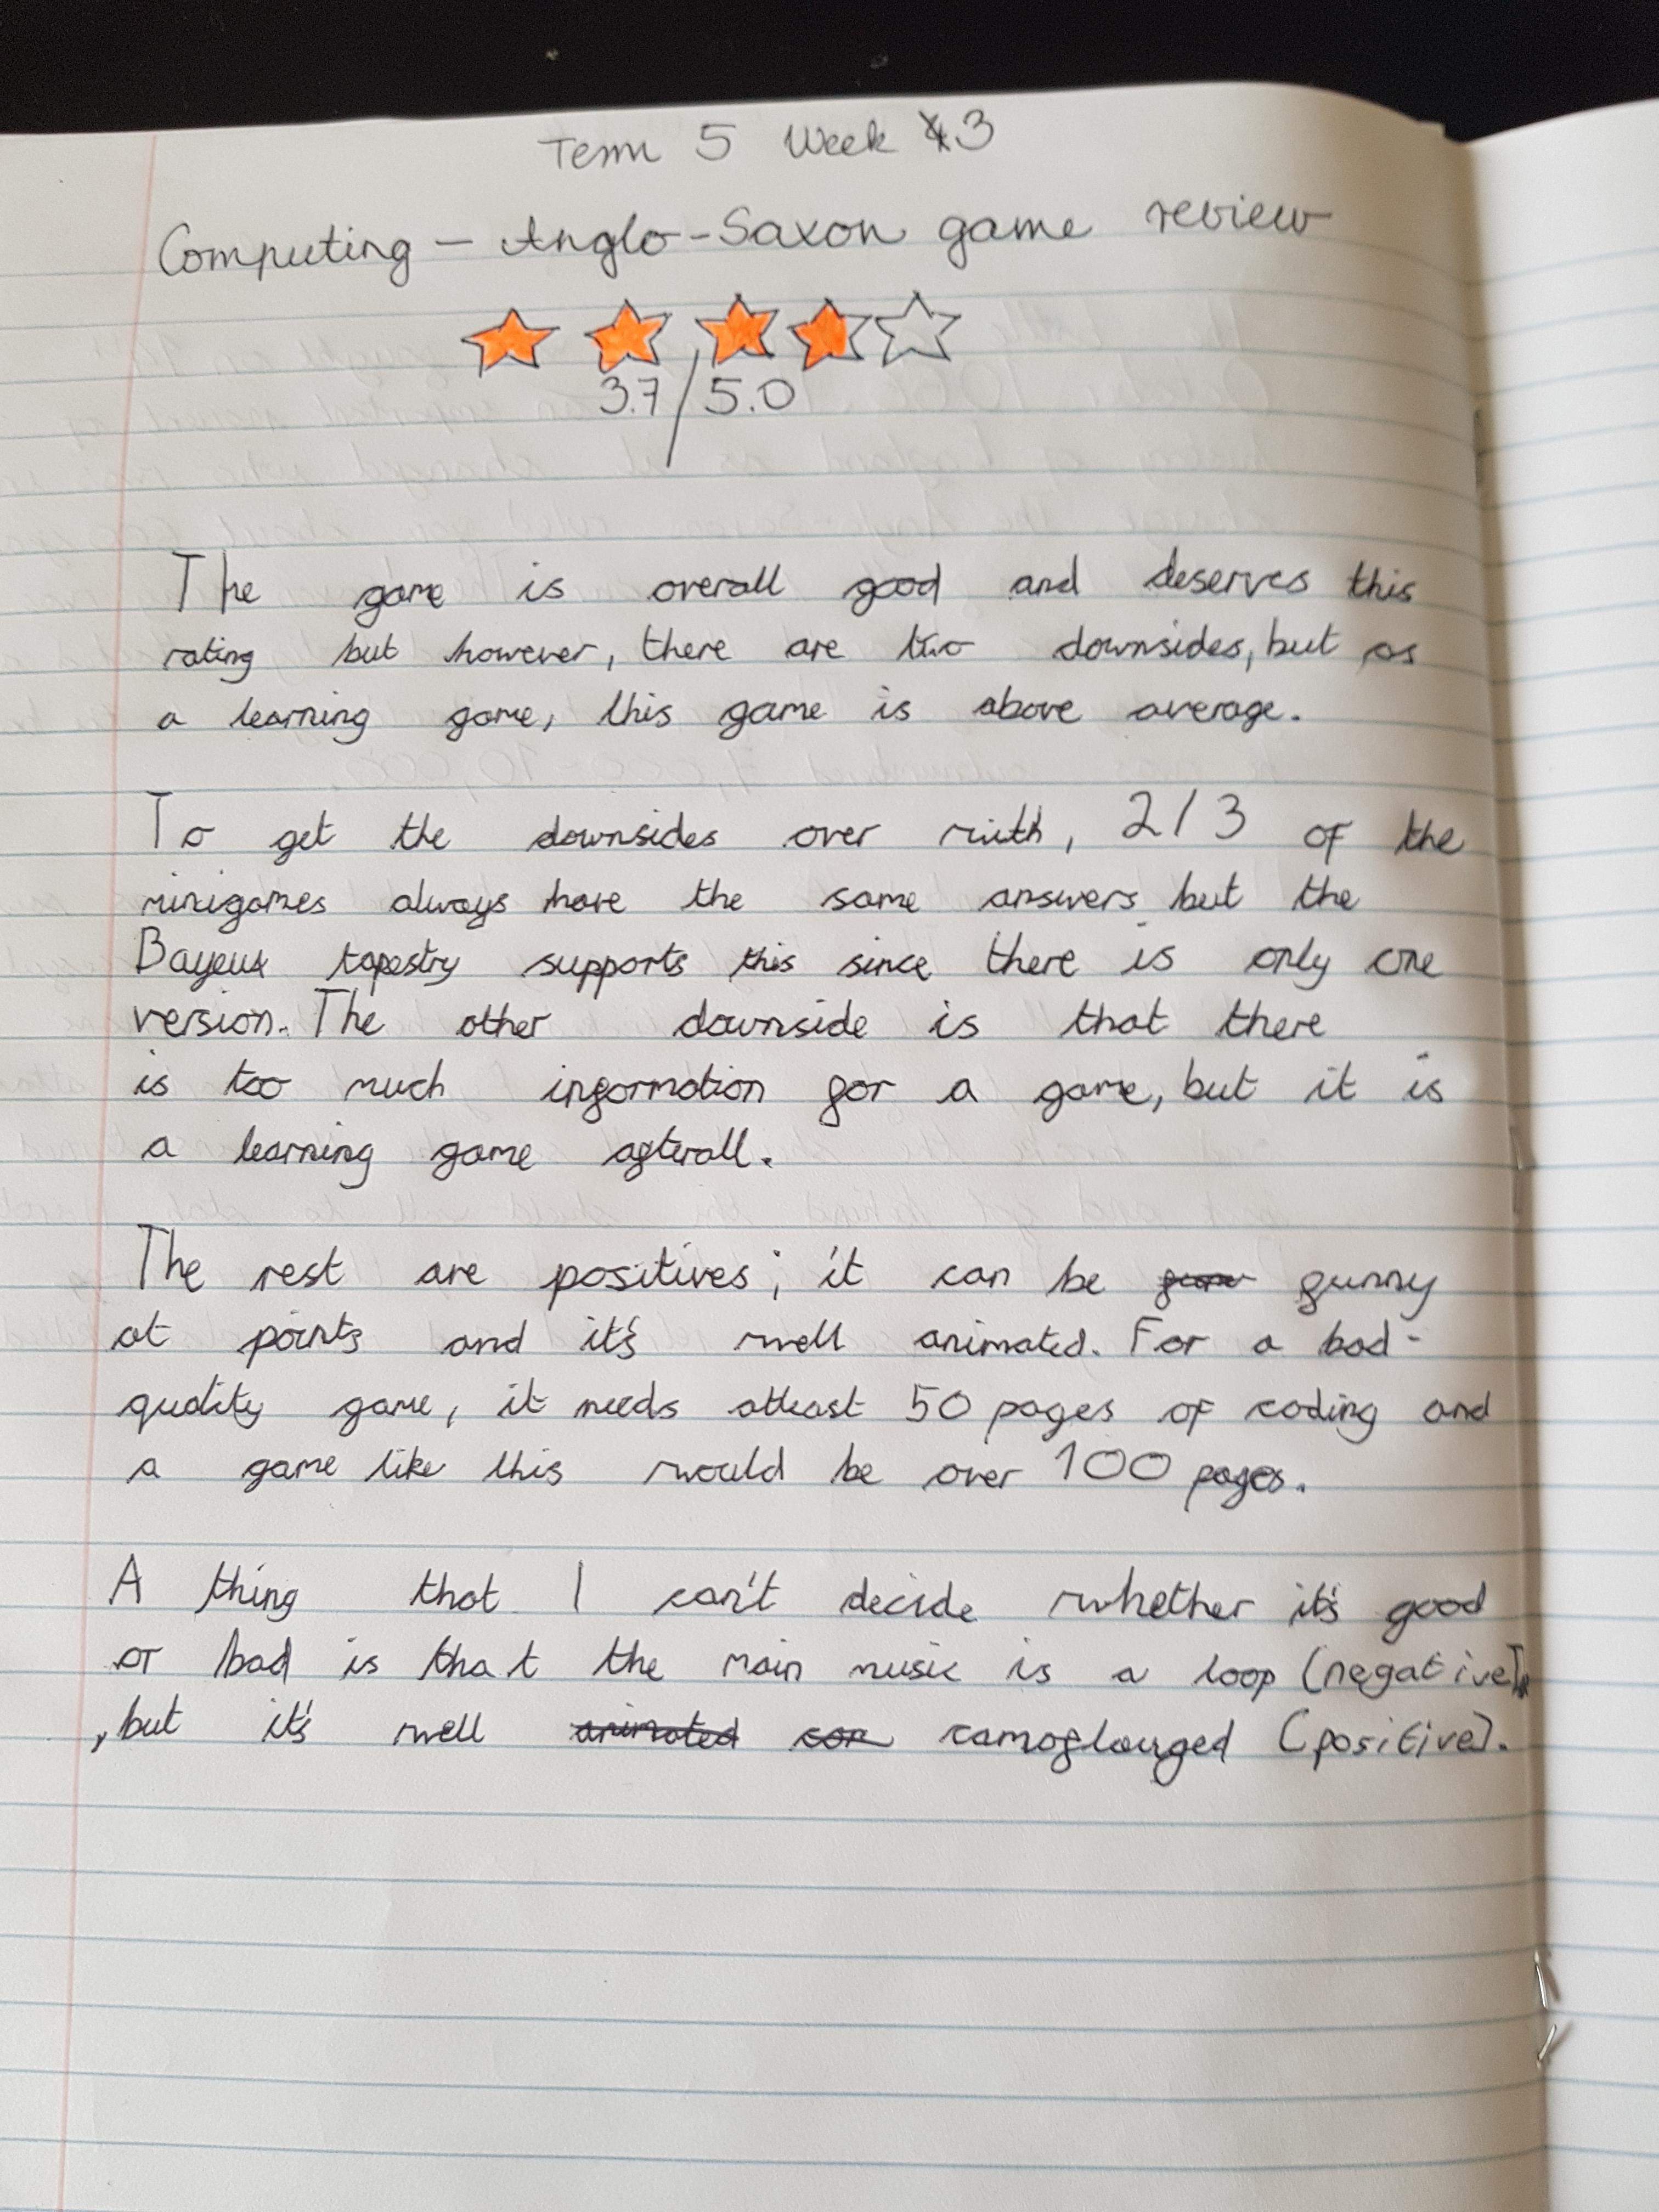 Term 5 Week 3
Computing - Anglo-Saxon game review
3.7/5.0
The game is overall good and deserves this
rating but however, there are two downsides, but as
a learning game, this game is above average.
To get the downsides over with, 2/3 of the
minigames always have the same answers but the
Bayeux tapestry supports this since there is only one
version. The other downside is that there
is too much information for a game, but it is
a learning game afterall.
The rest are positives; it can be funny
at points and it's well animated. For a bad-
quality game, it needs atleast 50 pages of coding and
a game like this would be over 100 pages.
A thing that I can't decide whether it's good
or bad is that the main music is a loop (negative)
, but it's well camoflauged (positive).